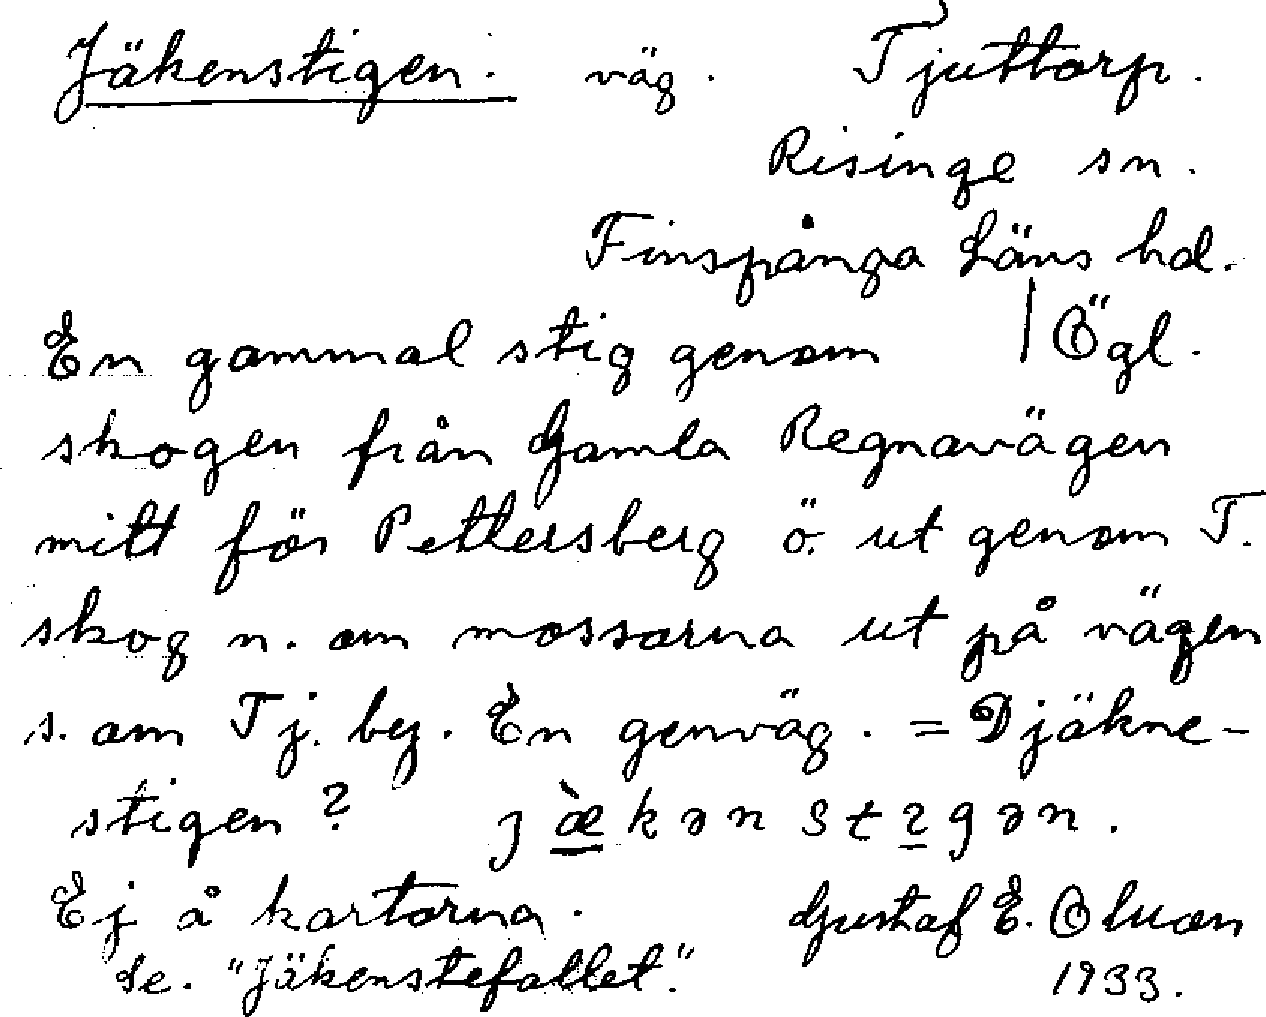 Jäkenstigen. väg. Tjuttorp.
Risinge sn.
Finspånga Läns hd.
En gammal stig genom | Ögl.
skogen från Gamla Regnavägen
mitt för Pettersberg ö. ut genom T.
skog n. om mossarna ut på vägen
s. om Tj. by. En genväg. = Djäkne-
stigen? jæ̀kən stıgən.
Ej å kartorna. Gustaf E.
se. "Jäkenstefallet". 1933.